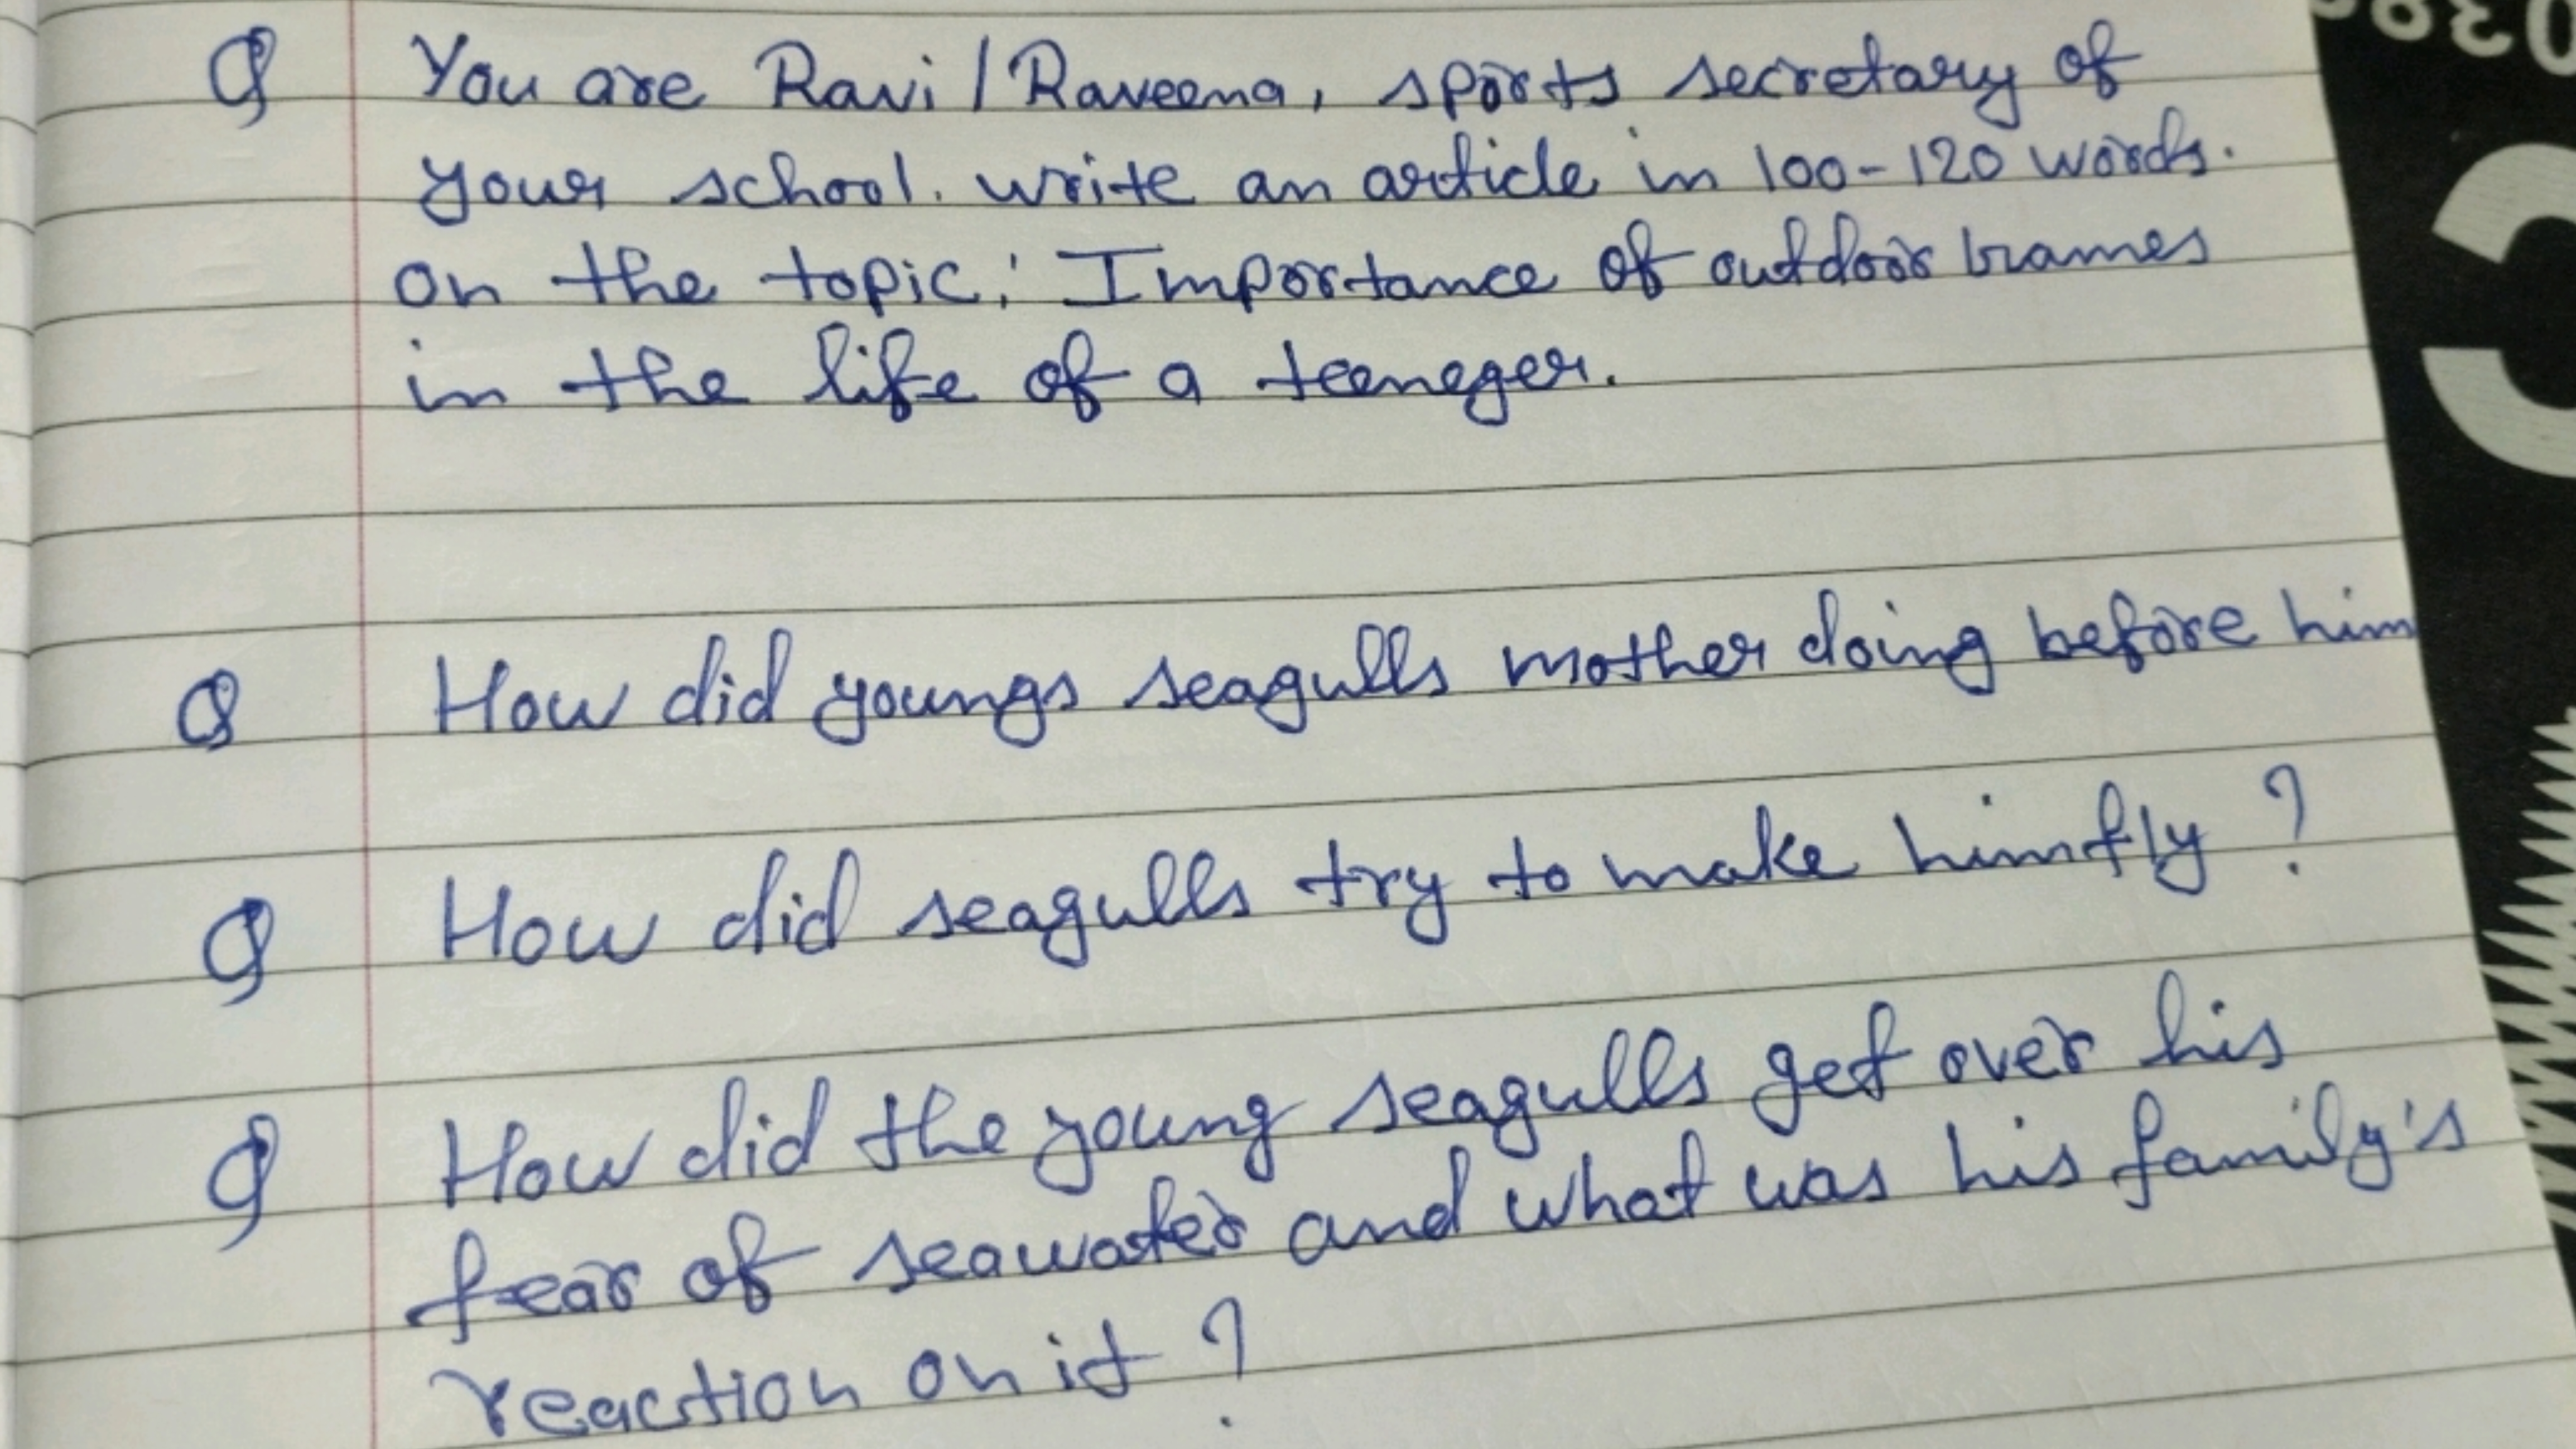 Q You are Ravi / Raveena, sports secretary of
your school. write an article in 100-120 words.
on the topic: Importance of outdoor Games
in the life of a teeneger.
Q How did youngs seagulls mother doing before him
Q How did seagulls try to make him fly ?
Q How did the young seagulls get over his
fear of seawater and what was his family's
reaction on it ?